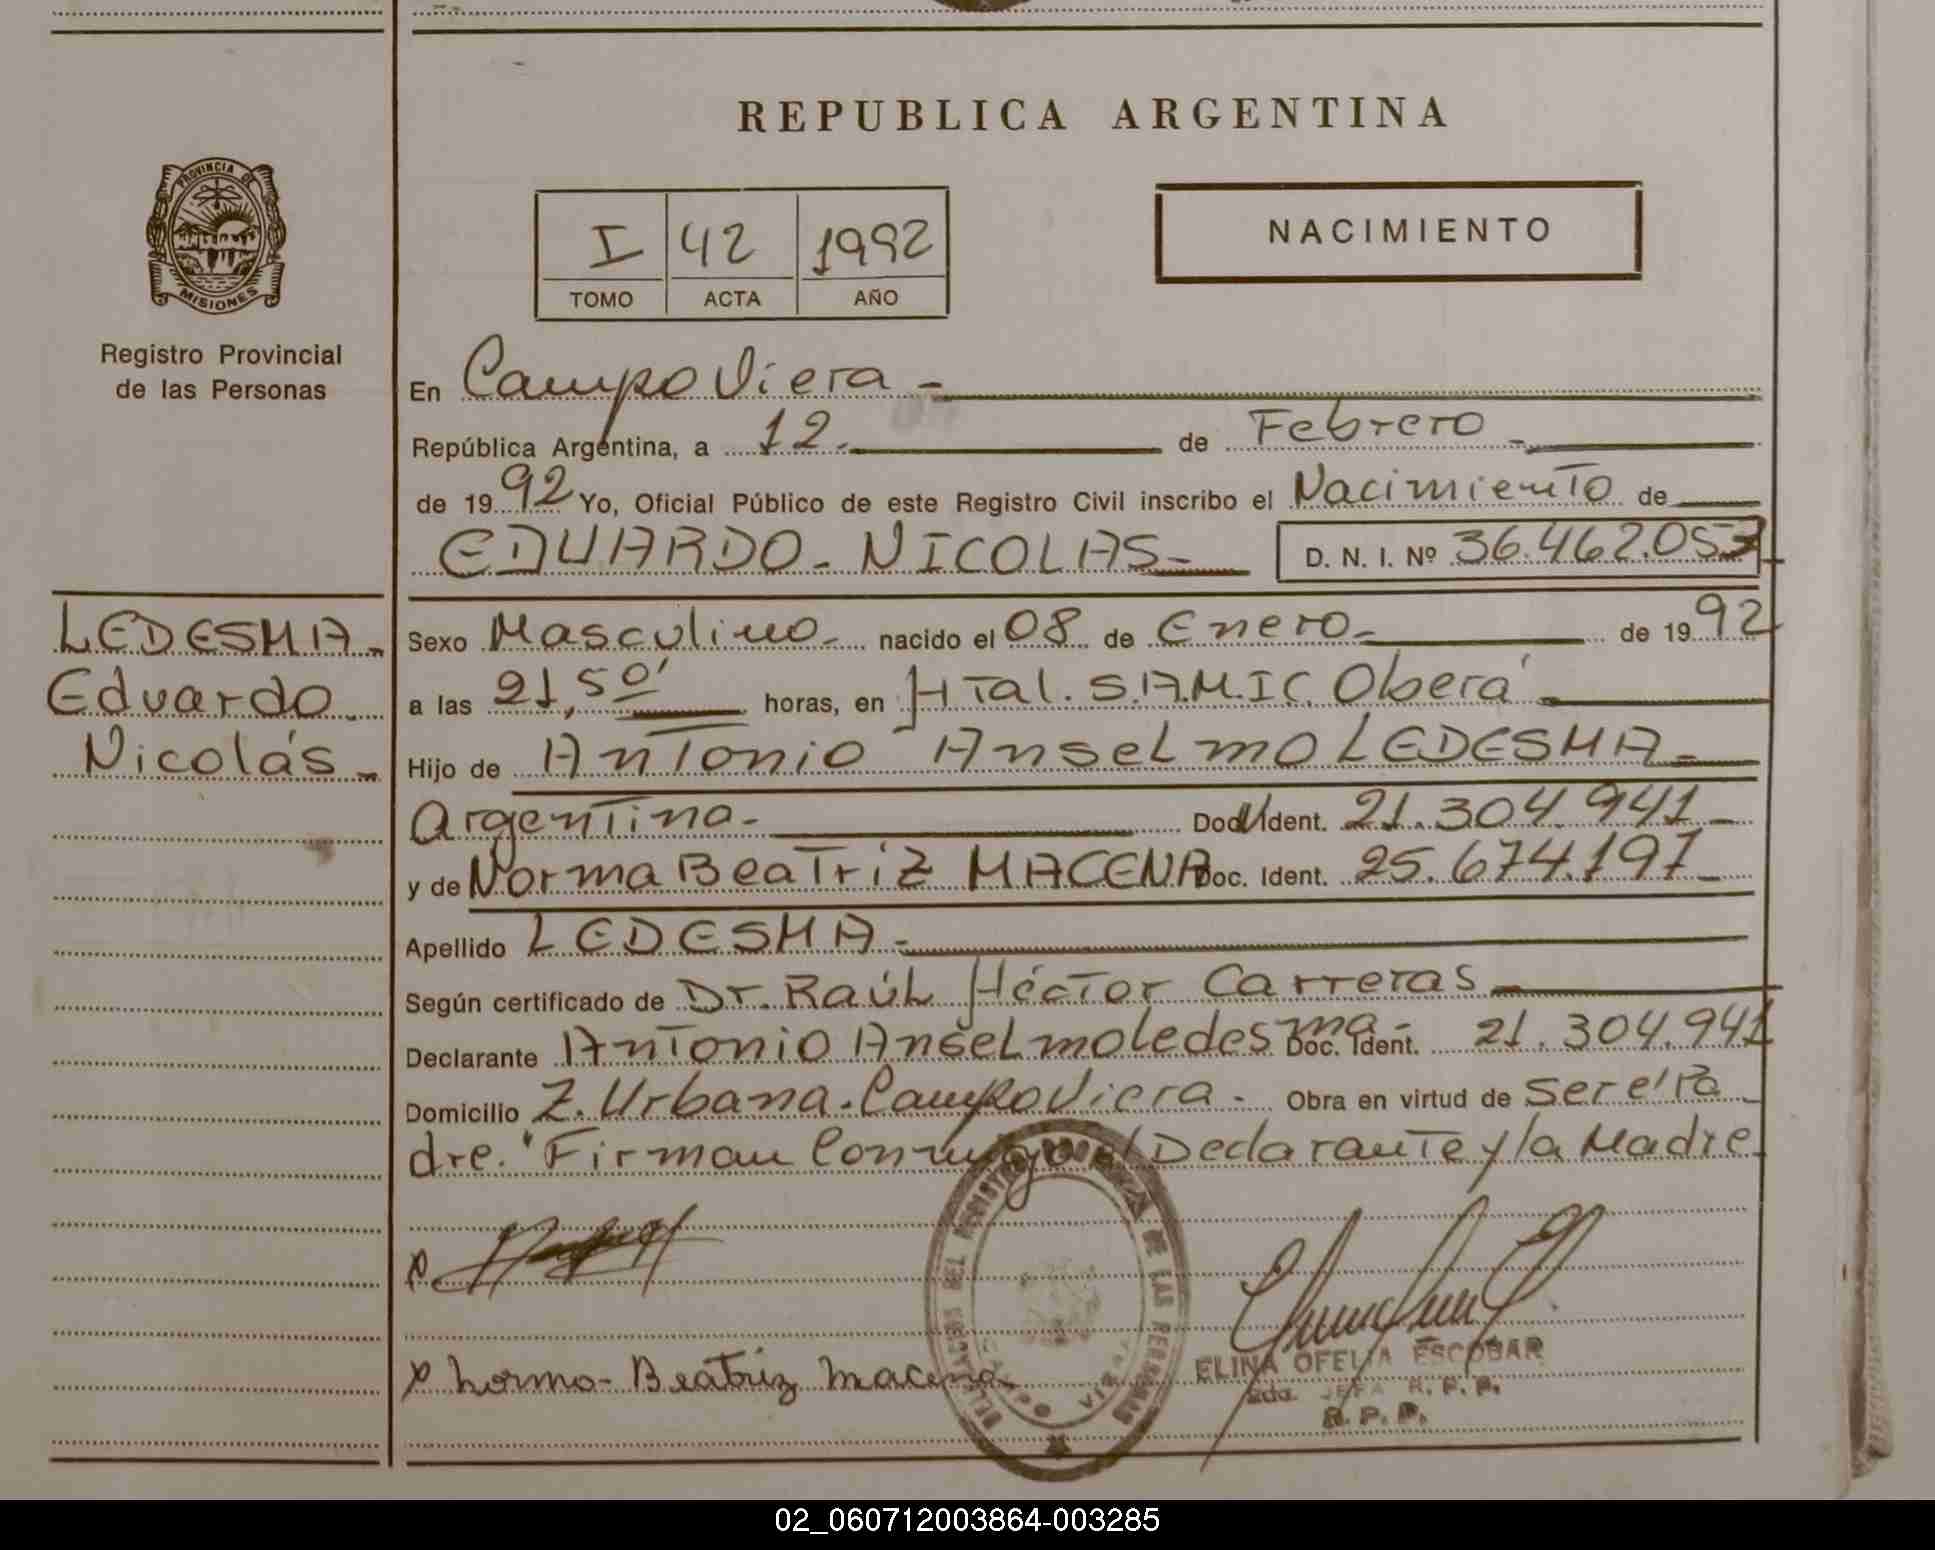 REPUBLICA ARGENTINA
PROVINCIA DE
MISIONES
Registro Provincial
de las Personas
I 42 1992
TOMO ACTA AÑO
NACIMIENTO
En Campo Viera -
República Argentina, a 12. de Febrero -
de 1992 Yo, Oficial Público de este Registro Civil inscribo el Nacimiento de
EDUARDO - NICOLAS - D. N. I. Nº 36.462.053
LEDESMA -
Eduardo
Nicolás -
Sexo Masculino - nacido el 08 de Enero - de 1992
a las 21,50' horas, en HTal. S.A.M.I.C. Oberá -
Hijo de Antonio Anselmo LEDESMA -
Argentino - Doc. Ident. 21.304.941 -
y de Norma Beatriz MACENA Doc. Ident. 25.674.197 -
Apellido LEDESMA -
Según certificado de Dr. Raúl Héctor Carreras -
Declarante Antonio Anselmo Ledesma - Doc. Ident. 21.304.941
Domicilio Z. Urbana - Campo Viera - Obra en virtud de ser el Pa
dre. Firman Conmigo el Declarante y la Madre
x Norma Beatriz Macena
DELEGACION DEL REGISTRO DE LAS PERSONAS
CAMPO VIERA
ELINA OFELIA ESCOBAR
2da. JEFA R. P. P.
R. P. P.
02_060712003864-003285